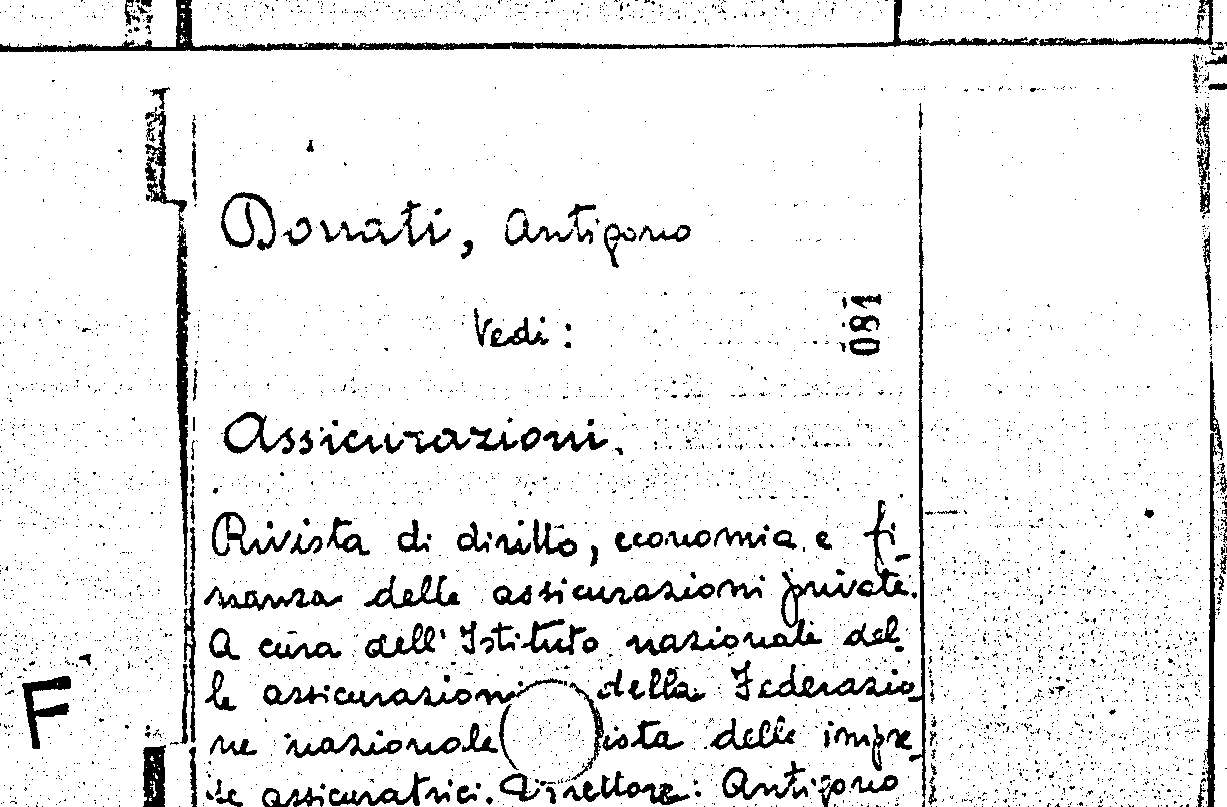 Donati, Antigono
Vedi:
081
Assicurazioni.
Rivista di diritto, economia e fi-
nanza delle assicurazioni private.
A cura dell'Istituto nazionale del-
le assicurazioni della Federazio
ne nazionale ista delle impre-
se assicuratrici. Direttore: Antigono
F